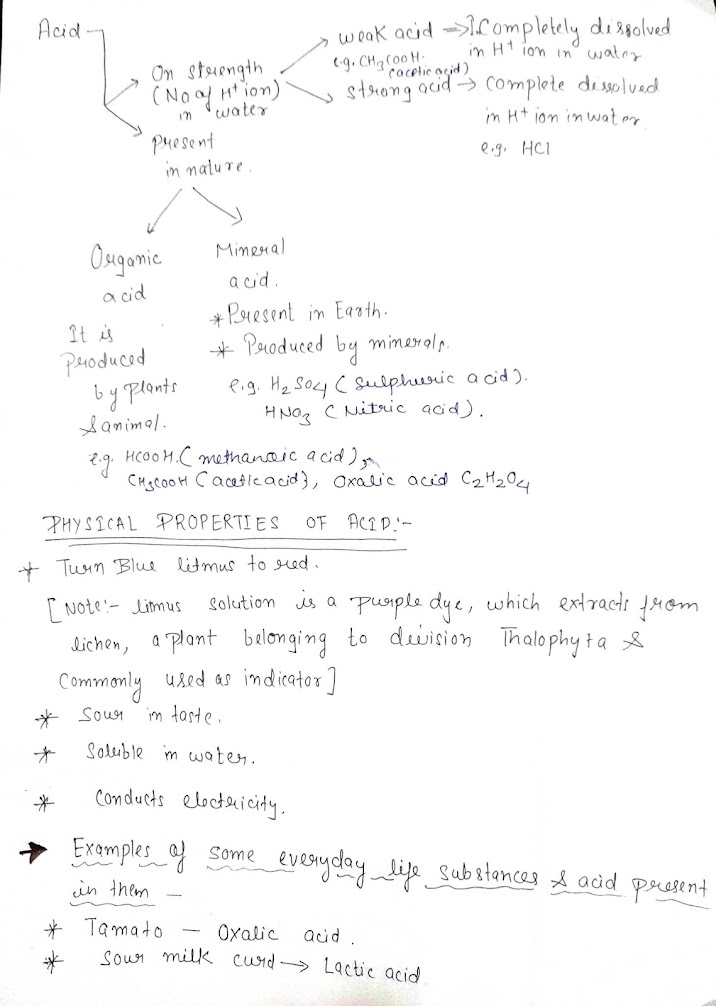 Acid
weak acid ⇒ Completely dissolved
in H+ ion in water
e.g. CH3COOH.
(acetic acid)
On strength
(No of H+ ion)
in water
strong acid → Complete dissolved
in H+ ion in water
e.g. HCl
Present
in nature.
Organic
acid
It is
Produced
by Plants
& animal.
e.g. HCOOH. (methanoic acid),
CH3COOH (acetic acid), Oxalic acid C2H2O4
Mineral
acid.
* Present in Earth.
* Produced by minerals.
e.g. H2SO4 (Sulphuric acid).
HNO3 (Nitric acid).
PHYSICAL PROPERTIES OF ACID:-
* Turn Blue litmus to red.
[Note:- limus solution is a purple dye, which extracts from
lichen, a plant belonging to division Thalophyta &
Commonly used as indicator]
* Sour in taste.
* Soluble in water.
* Conducts electricity.
→ Examples of some everyday life substances & acid present
in them —
* Tamato — Oxalic acid.
* Sour milk curd → Lactic acid